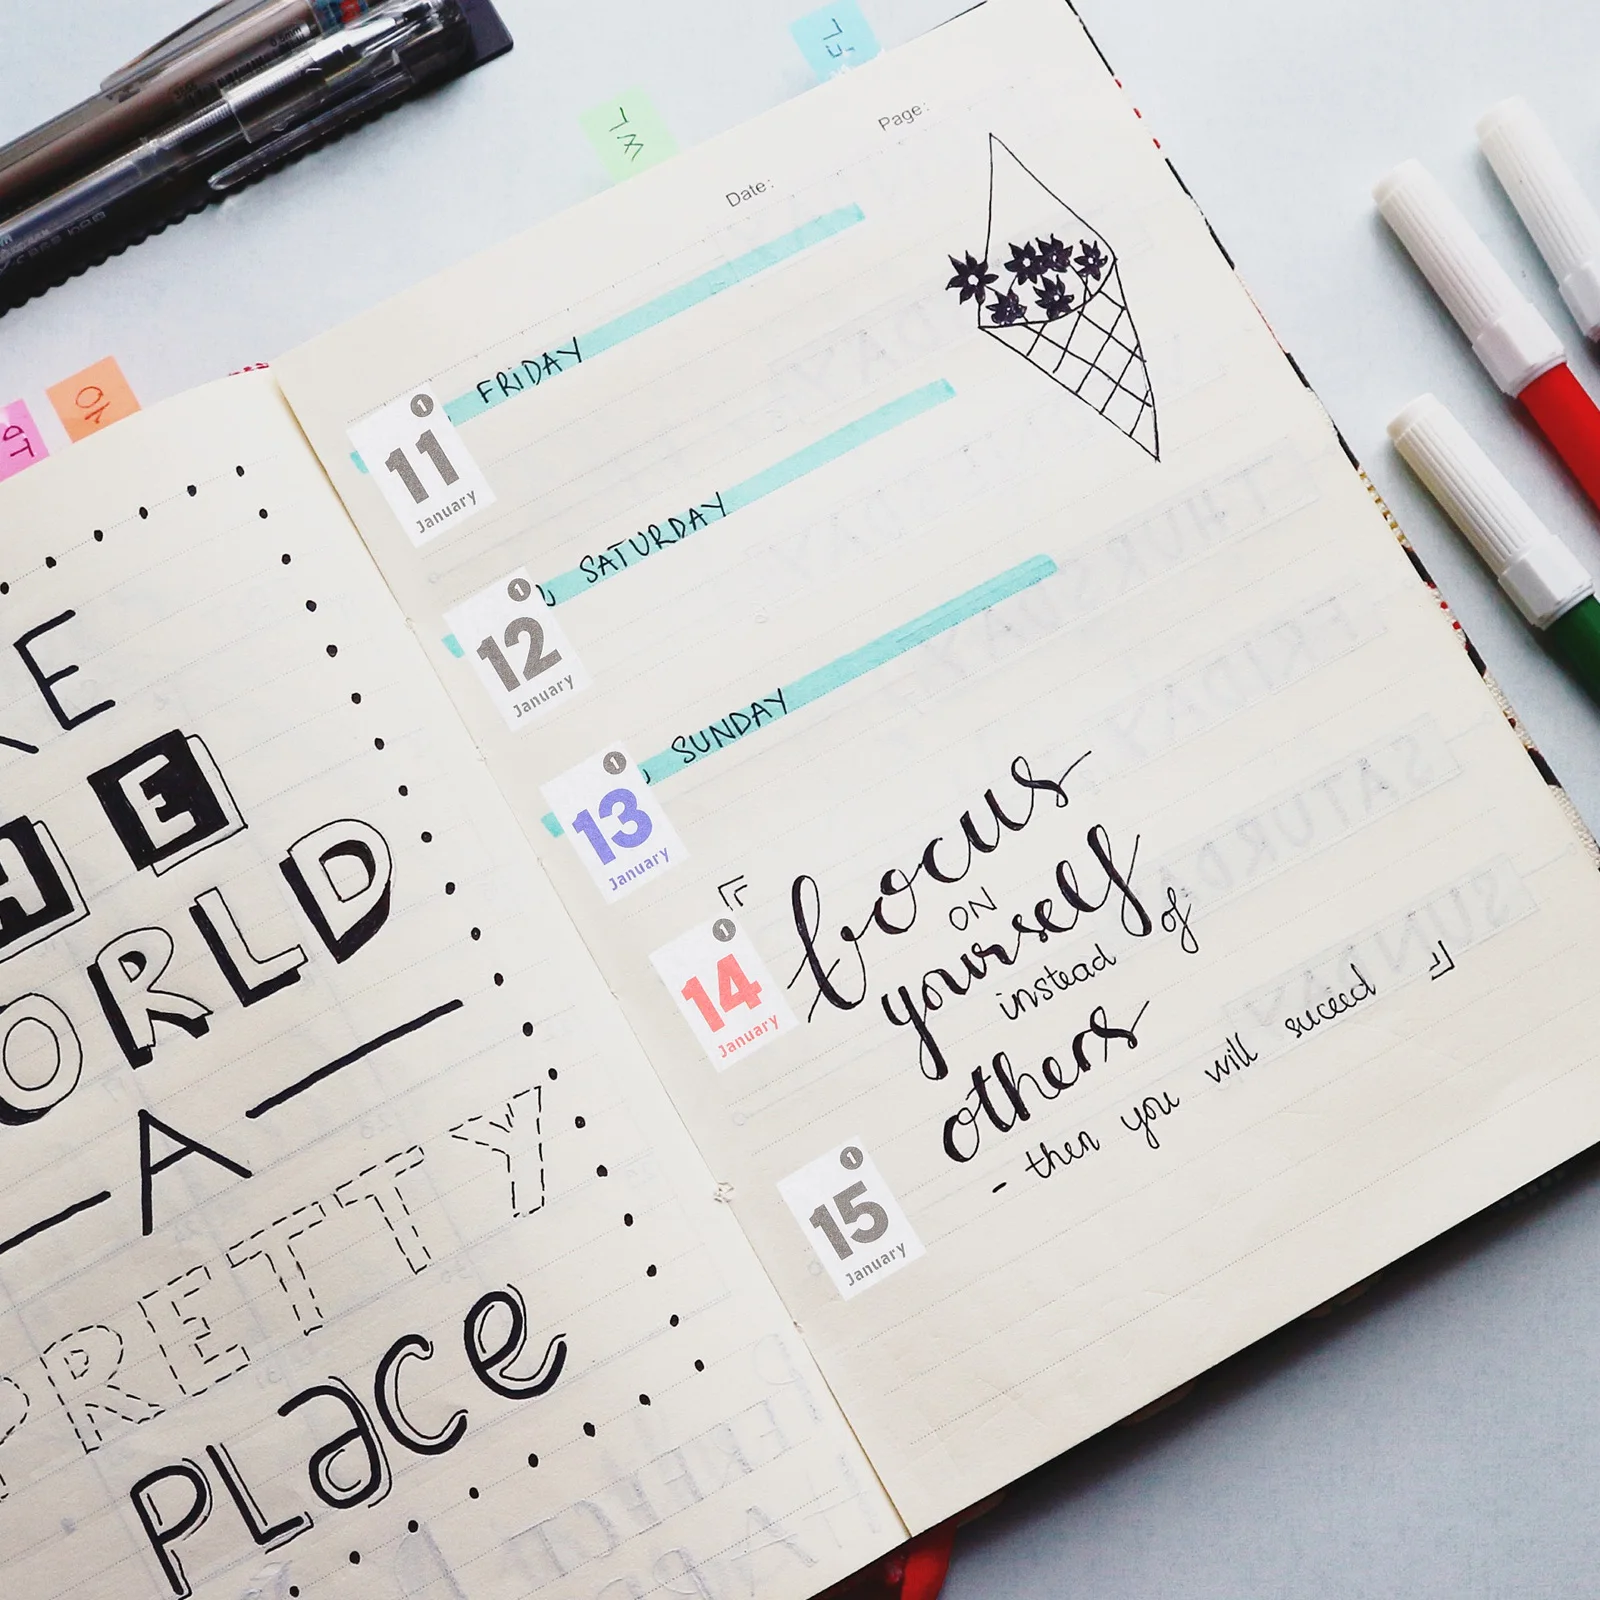 KE
HE
ORLD
A
PRETTY
PLace
Page:
Date:
1
11
January
FRiDAY
1
12
January
SATURDAY
1
13
January
SUNDAY
1
14
January
focus
ON
yourself
instead of
others
- then you will suceed
1
15
January